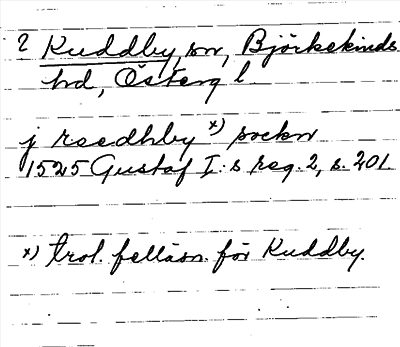 ? Kuddby sn, Björkekinds
hd, Österg l.
j roedhby x) sockn
1525 Gustaf I:s reg. 2, s. 201.
x) trol. felläsn. för Kuddby.